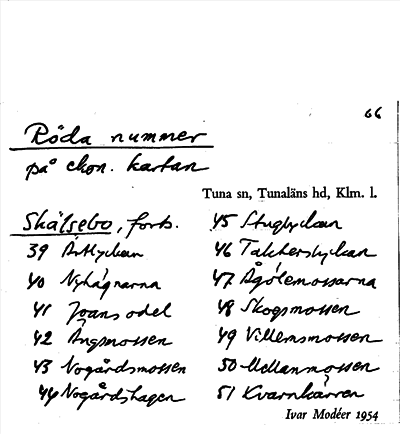 66
Röda nummer
på ekon. kartan
Tuna sn, Tunaläns hd, Klm. l.
Skälsebo, forts.
39 Ärtlyckan
40 Nyhagnarna
41 Joans odel
42 Ängsmossen
43 Nogårdsmossen
44 Nogårdshagen
45 Stuglyckan
46 Takterslyckan
47 Agölemossarna
48 Skogsmossen
49 Villemsmossen
50 Mellanmossen
51 Kvarnkärren
Ivar Modéer 1954